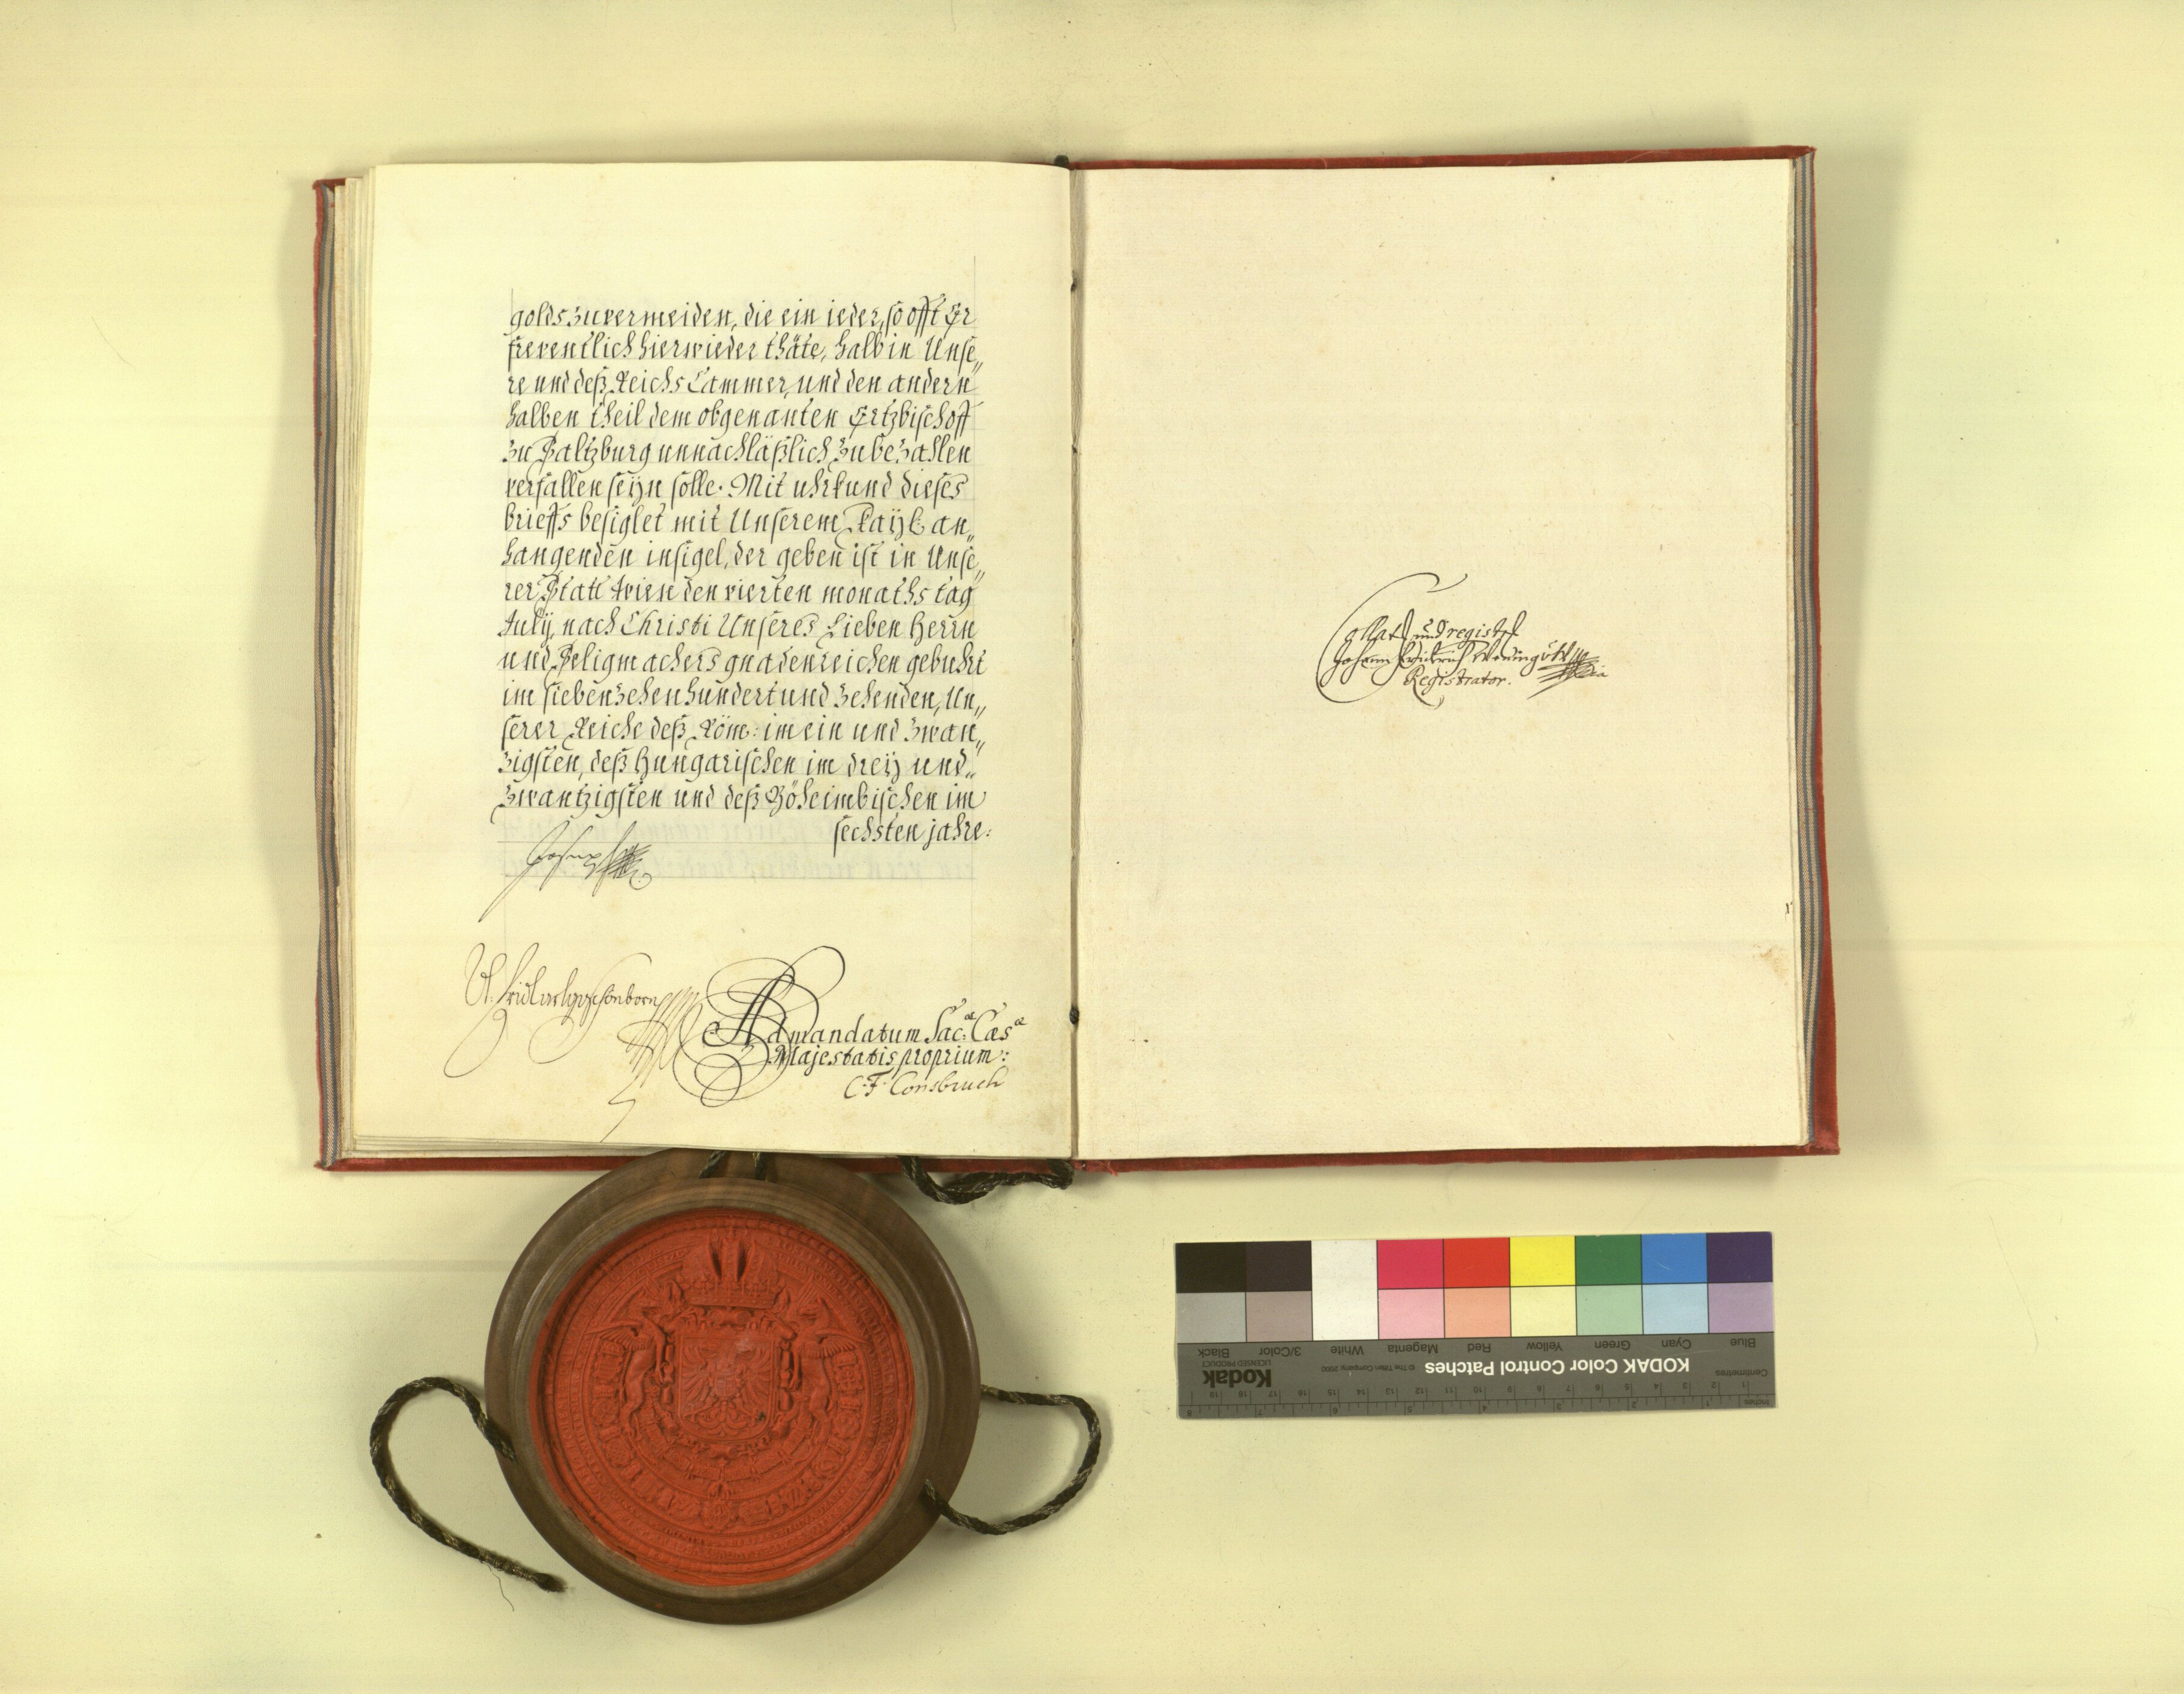 golds zuvermeiden, die ein ieder, so offt Er
freventlich hierwieder thäte, halb in Unse„
re und deß Reichs Cammer, und den andern
halben theil dem obgenanten Ertzbischoff
zu Saltzburg unnachläßlich zubezahlen
verfallen seÿn solle. Mit uhrkund dieses
brieffs besiglet mit Unserem Kaÿl. an„
hangenden insigel, der geben ist in Unse„
rer Statt Wien den vierten monaths tag
Julÿ, nach Christi Unseres Lieben Herrn
und Seligmachers gnadenreichen gebuhrt
im siebenzehenhundert und zehenden, Un„
serer Reiche deß Röm: im ein und zwan„
zigsten, deß Hungarischen im dreÿ und„
zwantzigsten und deß Böheimbischen im
sechsten jahre:
Joseph
Vt. Fridl carl gv schönborn
Ad mandatum Sac:ae Caesae
Majestatis proprium:
C. F. Consbruch
Collat. und registrl.
Johann Fridrich
Registrator.
Blue
Cyan
Green
Yellow
Red
Magenta
White
3/Color
Black
KODAK Color Control Patches
© The Tiffen Company, 2000
Kodak
LICENSED PRODUCT
Centimetres
1 2 3 4 5 6 7 8 9 10 11 12 13 14 15 16 17 18 19
Inches
1 2 3 4 5 6 7 8